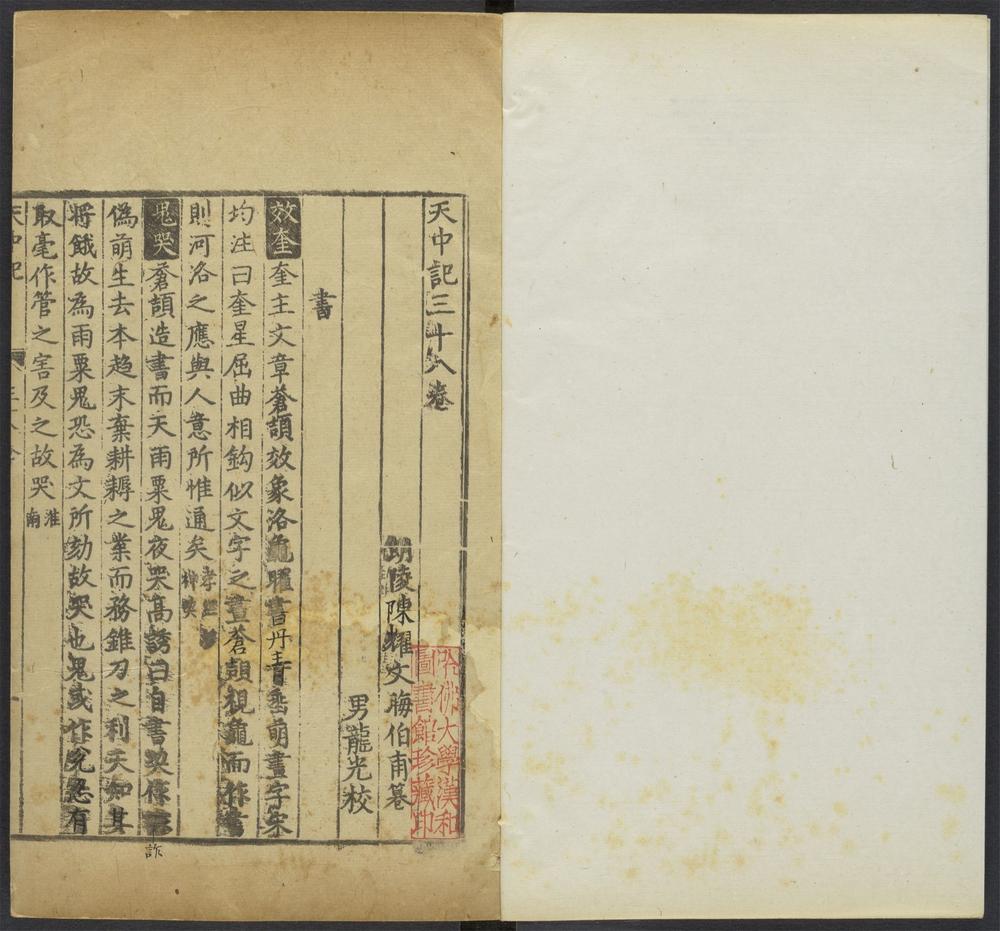 天中記三十八卷
朗陵陳耀文晦伯甫纂
男龍光校
書
效奎奎主文章蒼頡效象洛龜曜書丹青垂萌畫字宋
均注曰奎星屈曲相鈎似文字之畫蒼頡視龜而作書
則河洛之應與人意所惟通矣孝經
神契
鬼哭蒼頡造書而天雨粟鬼夜哭高誘曰自書契作
詐
偽萌生去本趋末棄耕耨之業而務錐刀之利天知其
將餓故為雨粟鬼恐為文所劾故哭也鬼或作兔恐有
取毫作管之害及之故哭淮
南
天中記
哈佛大學漢和
圖書館珍藏印